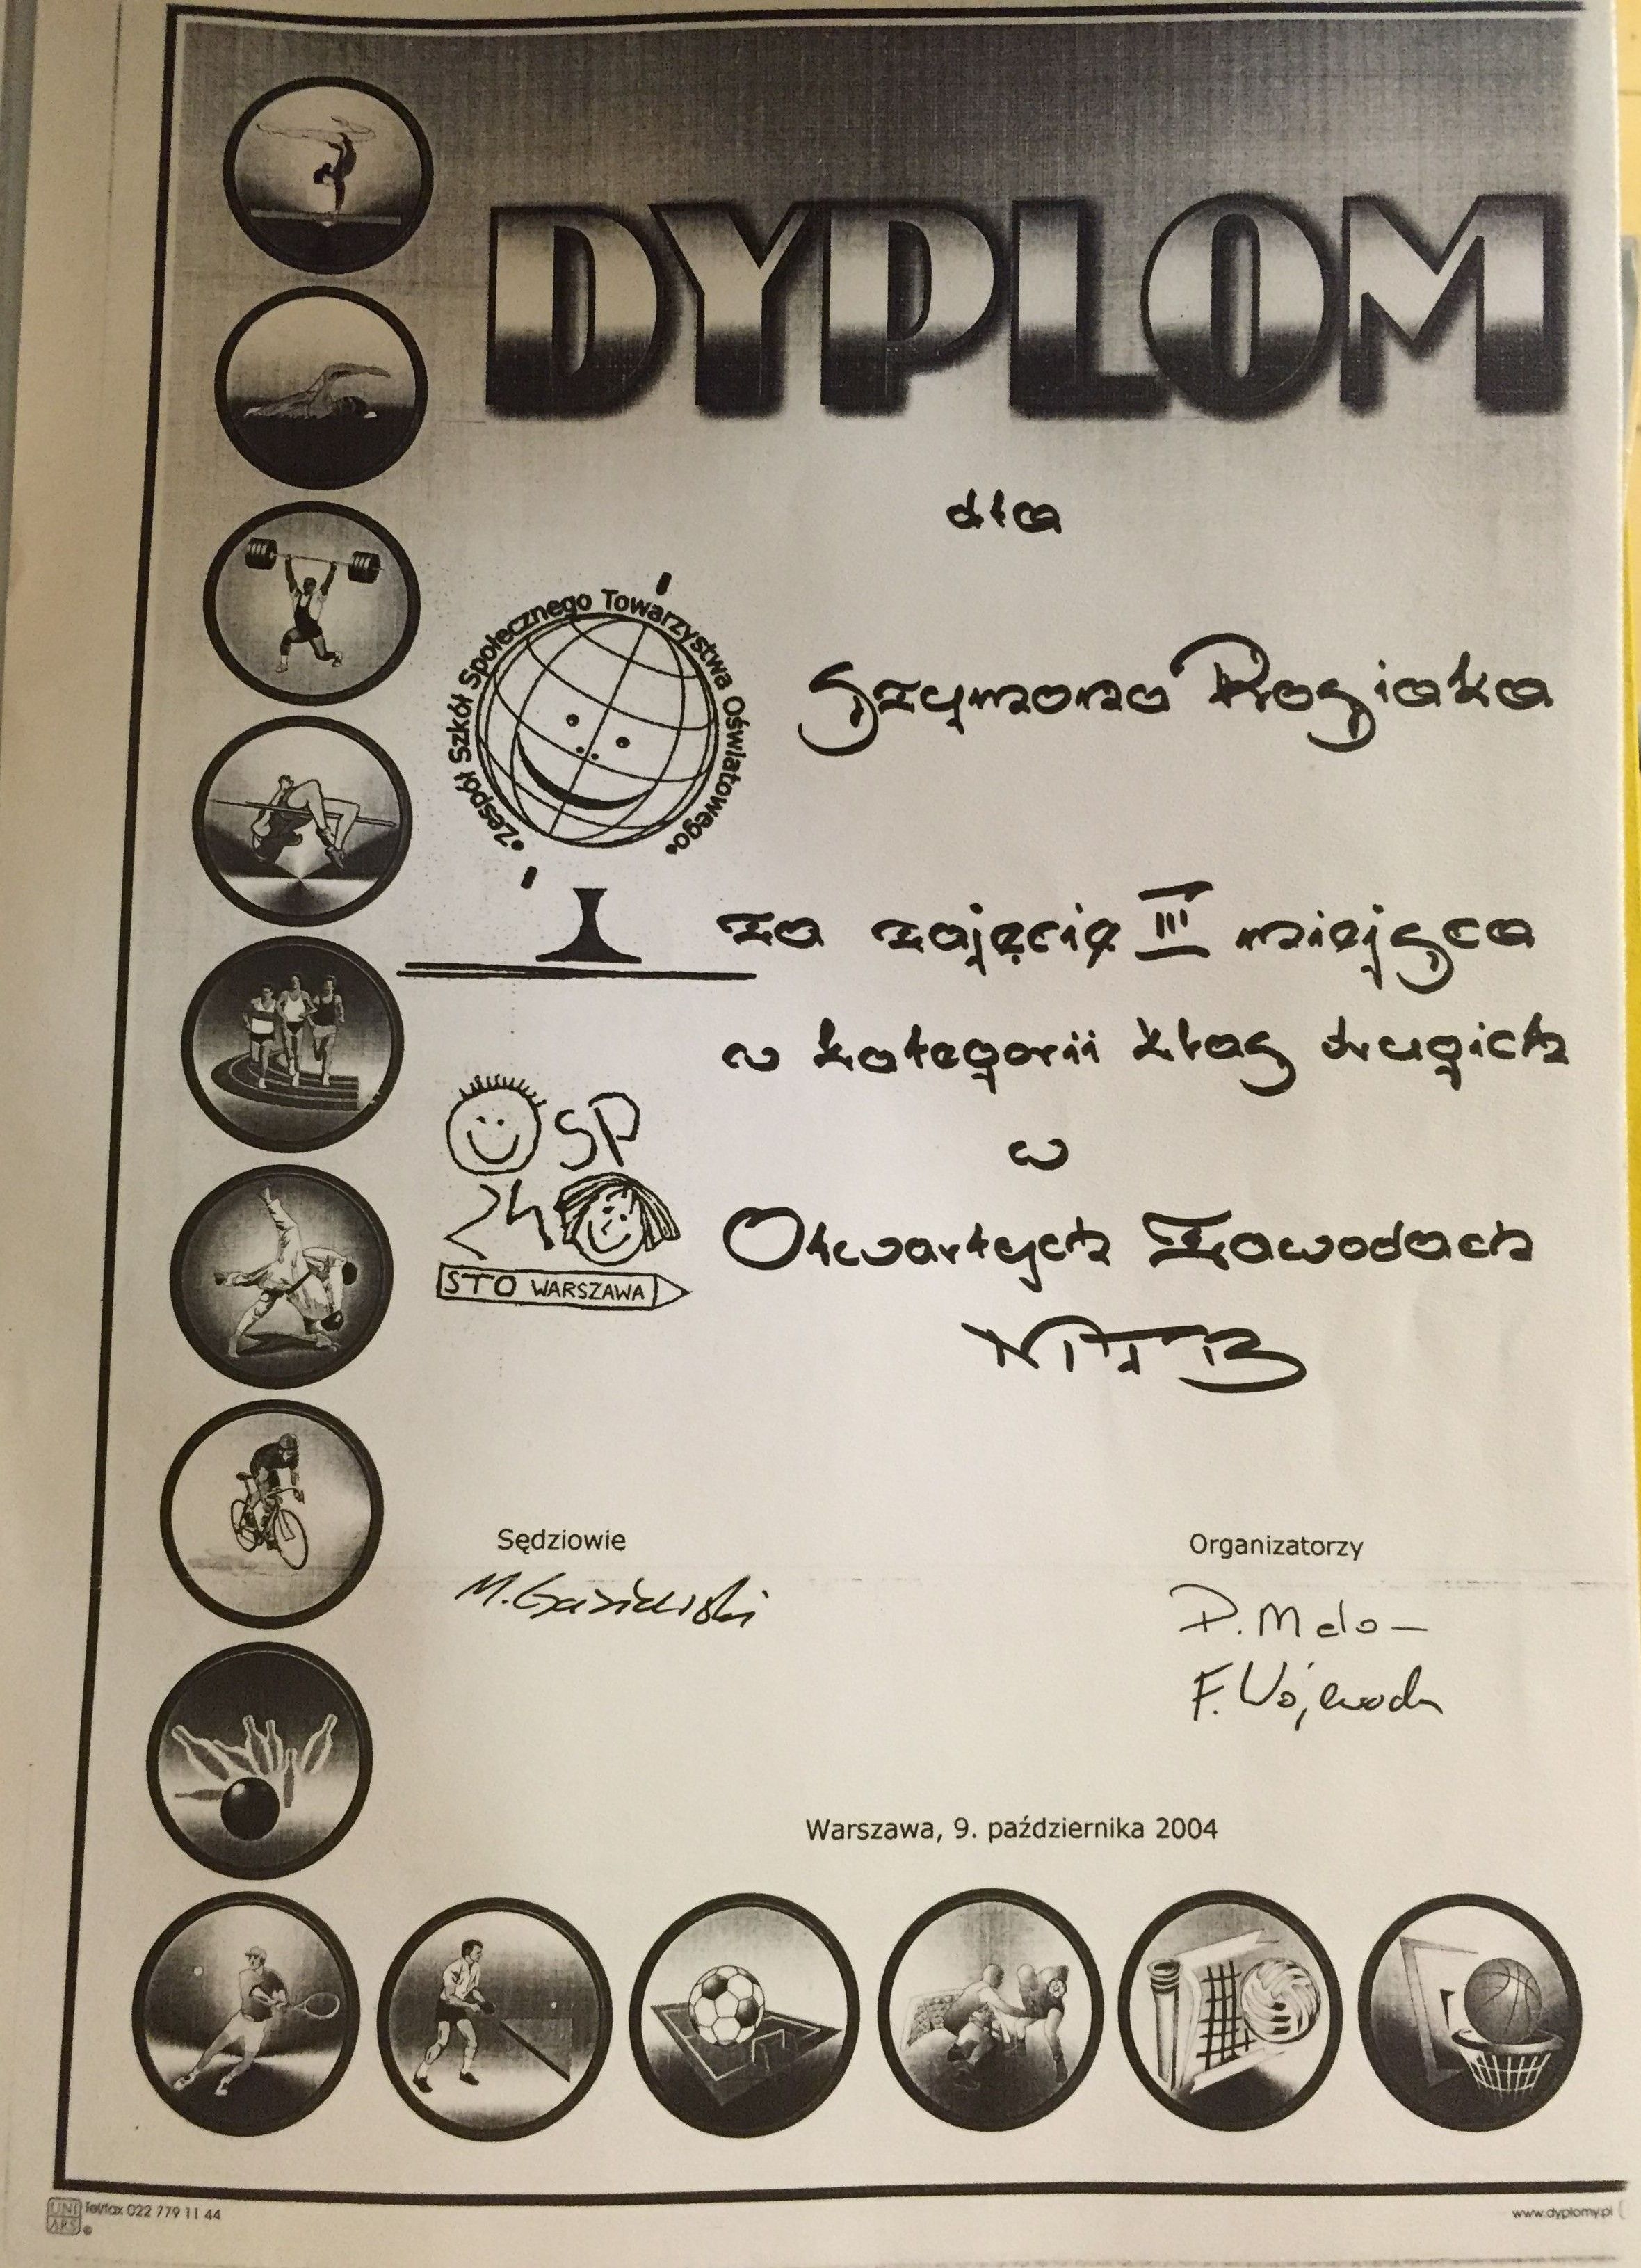 DYPLOM
dla
•Zespół Szkół Społecznego Towarzystwa Oświatowego•
Szymona Rogiaka
za zajęcię III miejsca
w kategorii klas drugich
SP
24
w
STO WARSZAWA
Otwartych Zawodach
MTB
Sędziowie
Organizatorzy
M.
P. Melo
F.
Warszawa, 9. października 2004
UNI ARS © Tel/fax 022 779 11 44
www.dyplomy.pl